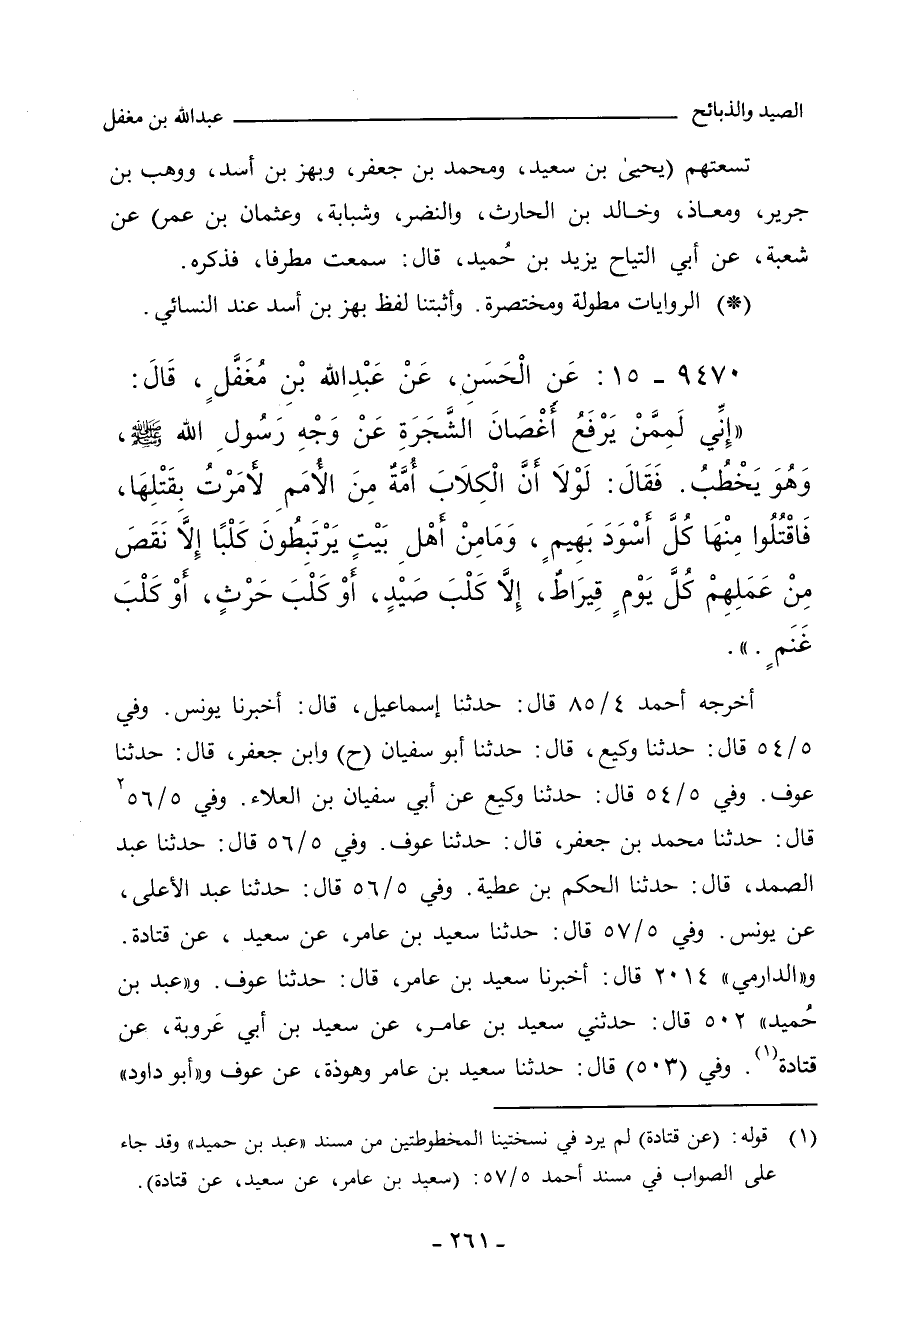 الصيد والذبائح ــــــــــــــــــــــــــــــ عبدالله بن مغفل
تسعتهم (يحيىٰ بن سعيد، ومحمد بن جعفر، وبهز بن أسد، ووهب بن
جرير، ومعـاذ، وخـالد بن الحارث، والنضر، وشبابة، وعثمان بن عمر) عن
شعبة، عن أبي التياح يزيد بن حُميد، قال: سمعت مطرفا، فذكره.
(*) الروايات مطولة ومختصرة. وأثبتنا لفظ بهز بن أسد عند النسائي.
٩٤٧٠ ـ ١٥: عَنِ الْحَسَنِ، عَنْ عَبْدِالله بْنِ مُغَفَّلٍ، قَالَ:
«إِنِّي لَمِمَّنْ يَرْفَعُ أَغْصَانَ الشَّجَرَةِ عَنْ وَجْهِ رَسُولِ الله ﷺ،
وَهُوَ يَخْطُبُ. فَقَالَ: لَوْلَا أَنَّ الْكِلَابَ أُمَّةٌ مِنَ الأُمَمِ لَأَمَرْتُ بِقَتْلِهَا،
فَاقْتُلُوا مِنْهَا كُلَّ أَسْوَدَ بَهِيمٍ، وَمَامِنْ أَهْلِ بَيْتٍ يَرْتَبِطُونَ كَلْبًا إِلَّا نَقَصَ
مِنْ عَمَلِهِمْ كُلَّ يَوْمٍ قِيرَاطٌ، إِلَّا كَلْبَ صَيْدٍ، أَوْ كَلْبَ حَرْثٍ، أَوْ كَلْبَ
غَنَمٍ.».
أخرجه أحمد ٨٥/٤ قال: حدثنا إسماعيل، قال: أخبرنا يونس. وفي
٥٤/٥ قال: حدثنا وكيع، قال: حدثنا أبو سفيان (ح) وابن جعفر، قال: حدثنا
عوف. وفي ٥٤/٥ قال: حدثنا وكيع عن أبي سفيان بن العلاء. وفي ٥٦/٥
قال: حدثنا محمد بن جعفر، قال: حدثنا عوف. وفي ٥٦/٥ قال: حدثنا عبد
الصمد، قال: حدثنا الحكم بن عطية. وفي ٥٦/٥ قال: حدثنا عبد الأعلى،
عن يونس. وفي ٥٧/٥ قال: حدثنا سعيد بن عامر، عن سعيد ، عن قتادة.
و«الدارمي» ٢٠١٤ قال: أخبرنا سعيد بن عامر، قال: حدثنا عوف. و«عبد بن
حُميد» ٥٠٢ قال: حدثني سعيد بن عامـر، عن سعيد بن أبي عَروبة، عن
قتادة(١). وفي (٥٠٣) قال: حدثنا سعيد بن عامر وهوذة، عن عوف و«أبو داود»
(١) قوله: (عن قتادة) لم يرد في نسختينا المخطوطتين من مسند «عبد بن حميد» وقد جاء
على الصواب في مسند أحمد ٥٧/٥: (سعيد بن عامر، عن سعيد، عن قتادة).
ـ ٢٦١ ـ